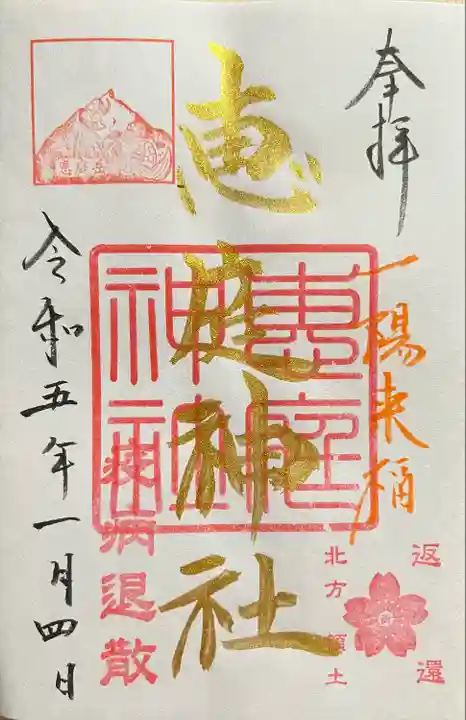 奉拝
一陽来福
返還
北方領土
恵庭神社
惠庭神社
疫病退散
恵庭岳
令和五年一月四日